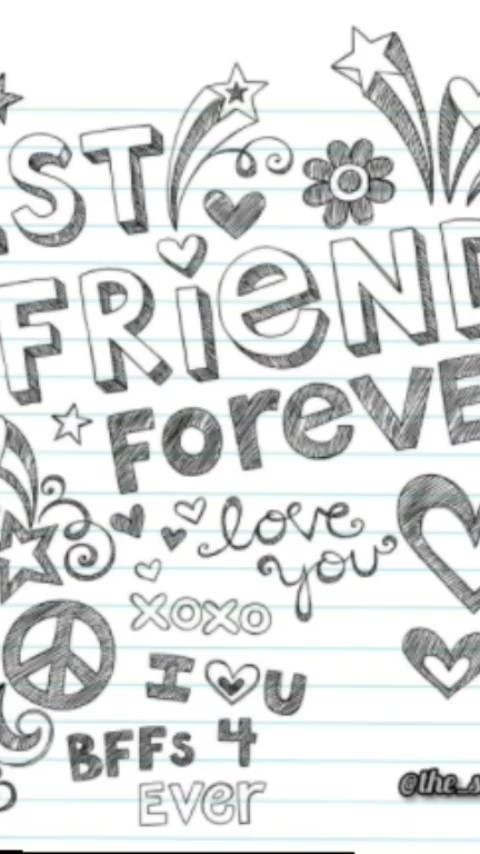 ST
FRiEND
Foreve
love
you
xoxo
I ♥ U
BFFs 4
Ever
@the_s